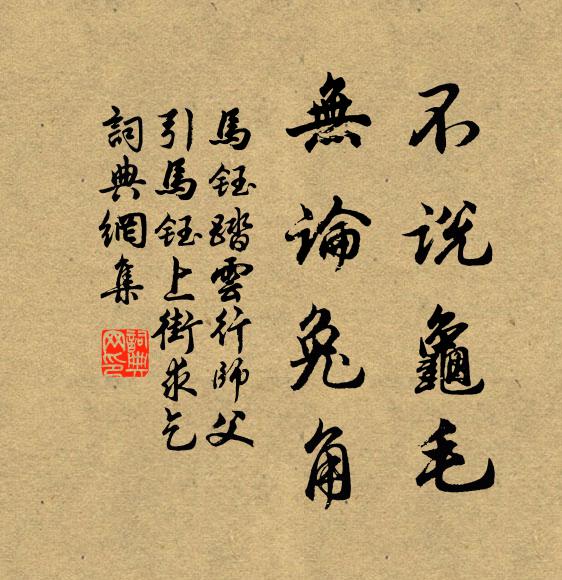 不說龜毛
無論兔角
馬鈺踏雲行師父
引馬鈺上街求乞
詞典網集
詞典
网印